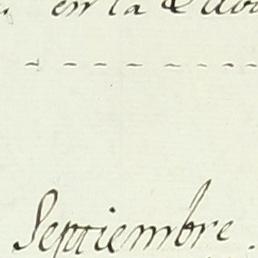 en la
Septiembre.